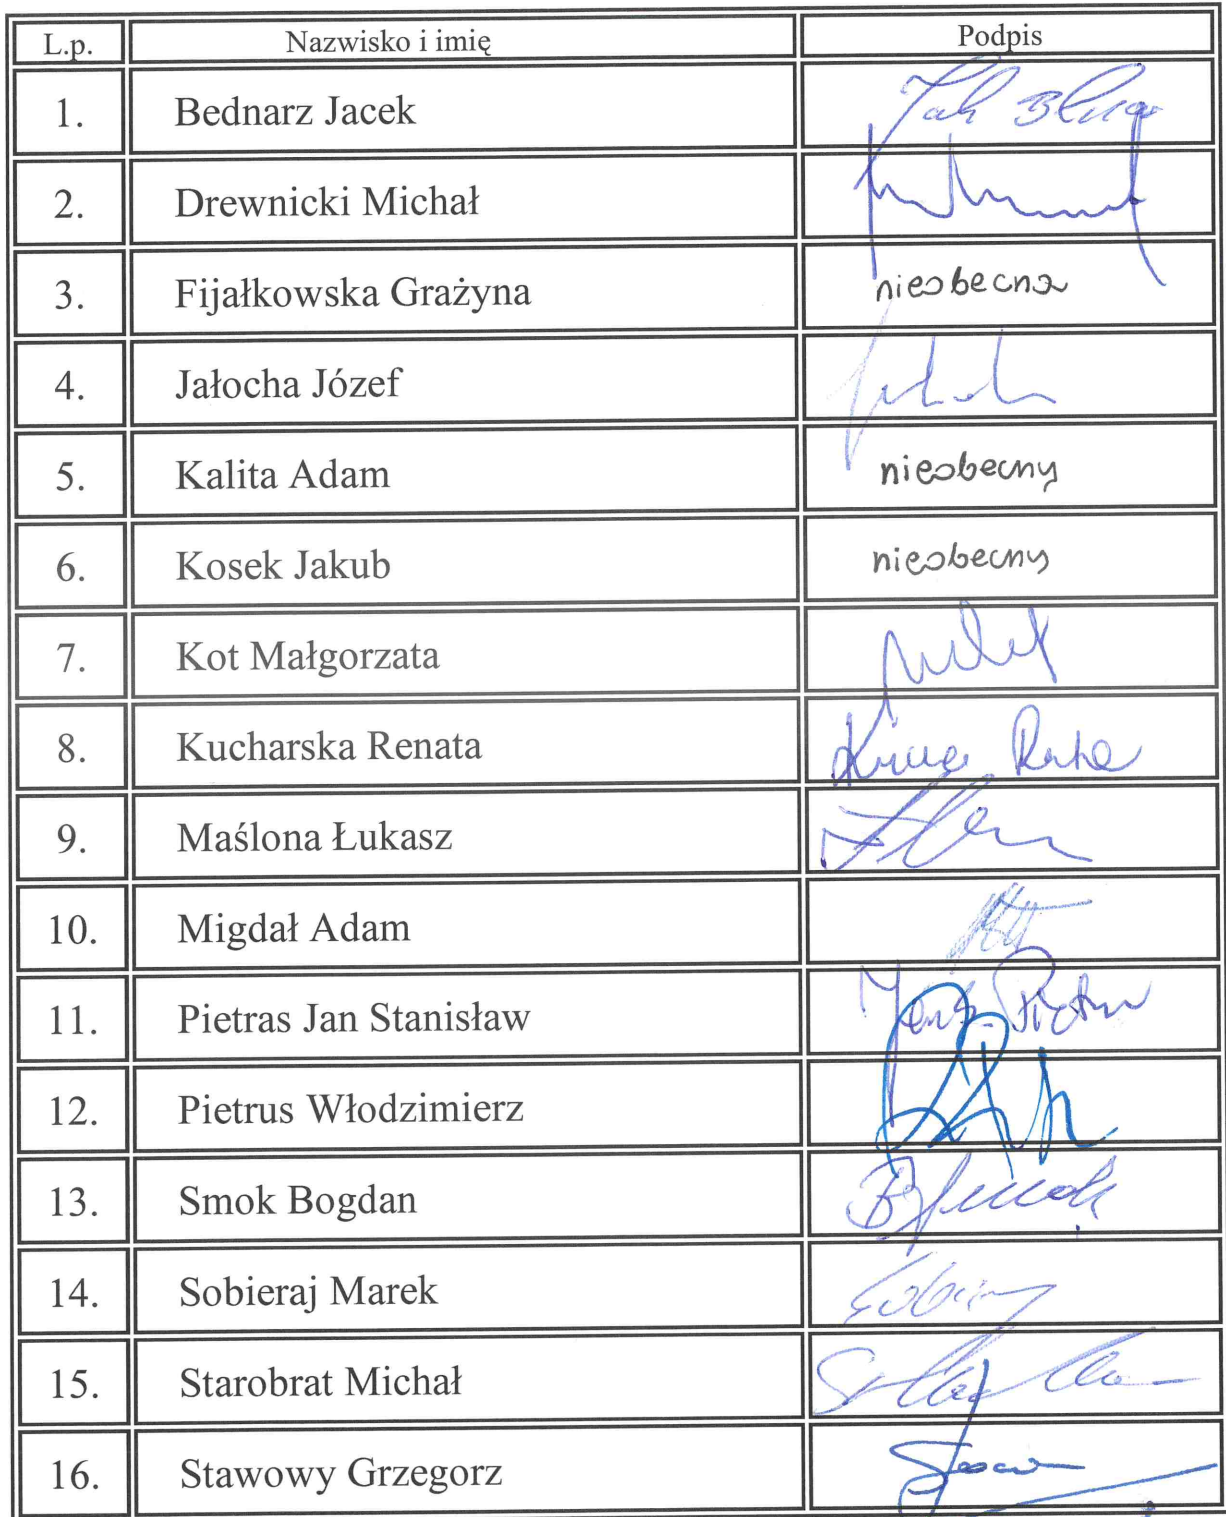 L.p. Nazwisko i imię Podpis
1. Bednarz Jacek
2. Drewnicki Michał
3. Fijałkowska Grażyna nieobecna
4. Jałocha Józef
5. Kalita Adam nieobecny
6. Kosek Jakub nieobecny
7. Kot Małgorzata
8. Kucharska Renata
9. Maślona Łukasz
10. Migdał Adam
11. Pietras Jan Stanisław
12. Pietrus Włodzimierz
13. Smok Bogdan
14. Sobieraj Marek
15. Starobrat Michał
16. Stawowy Grzegorz